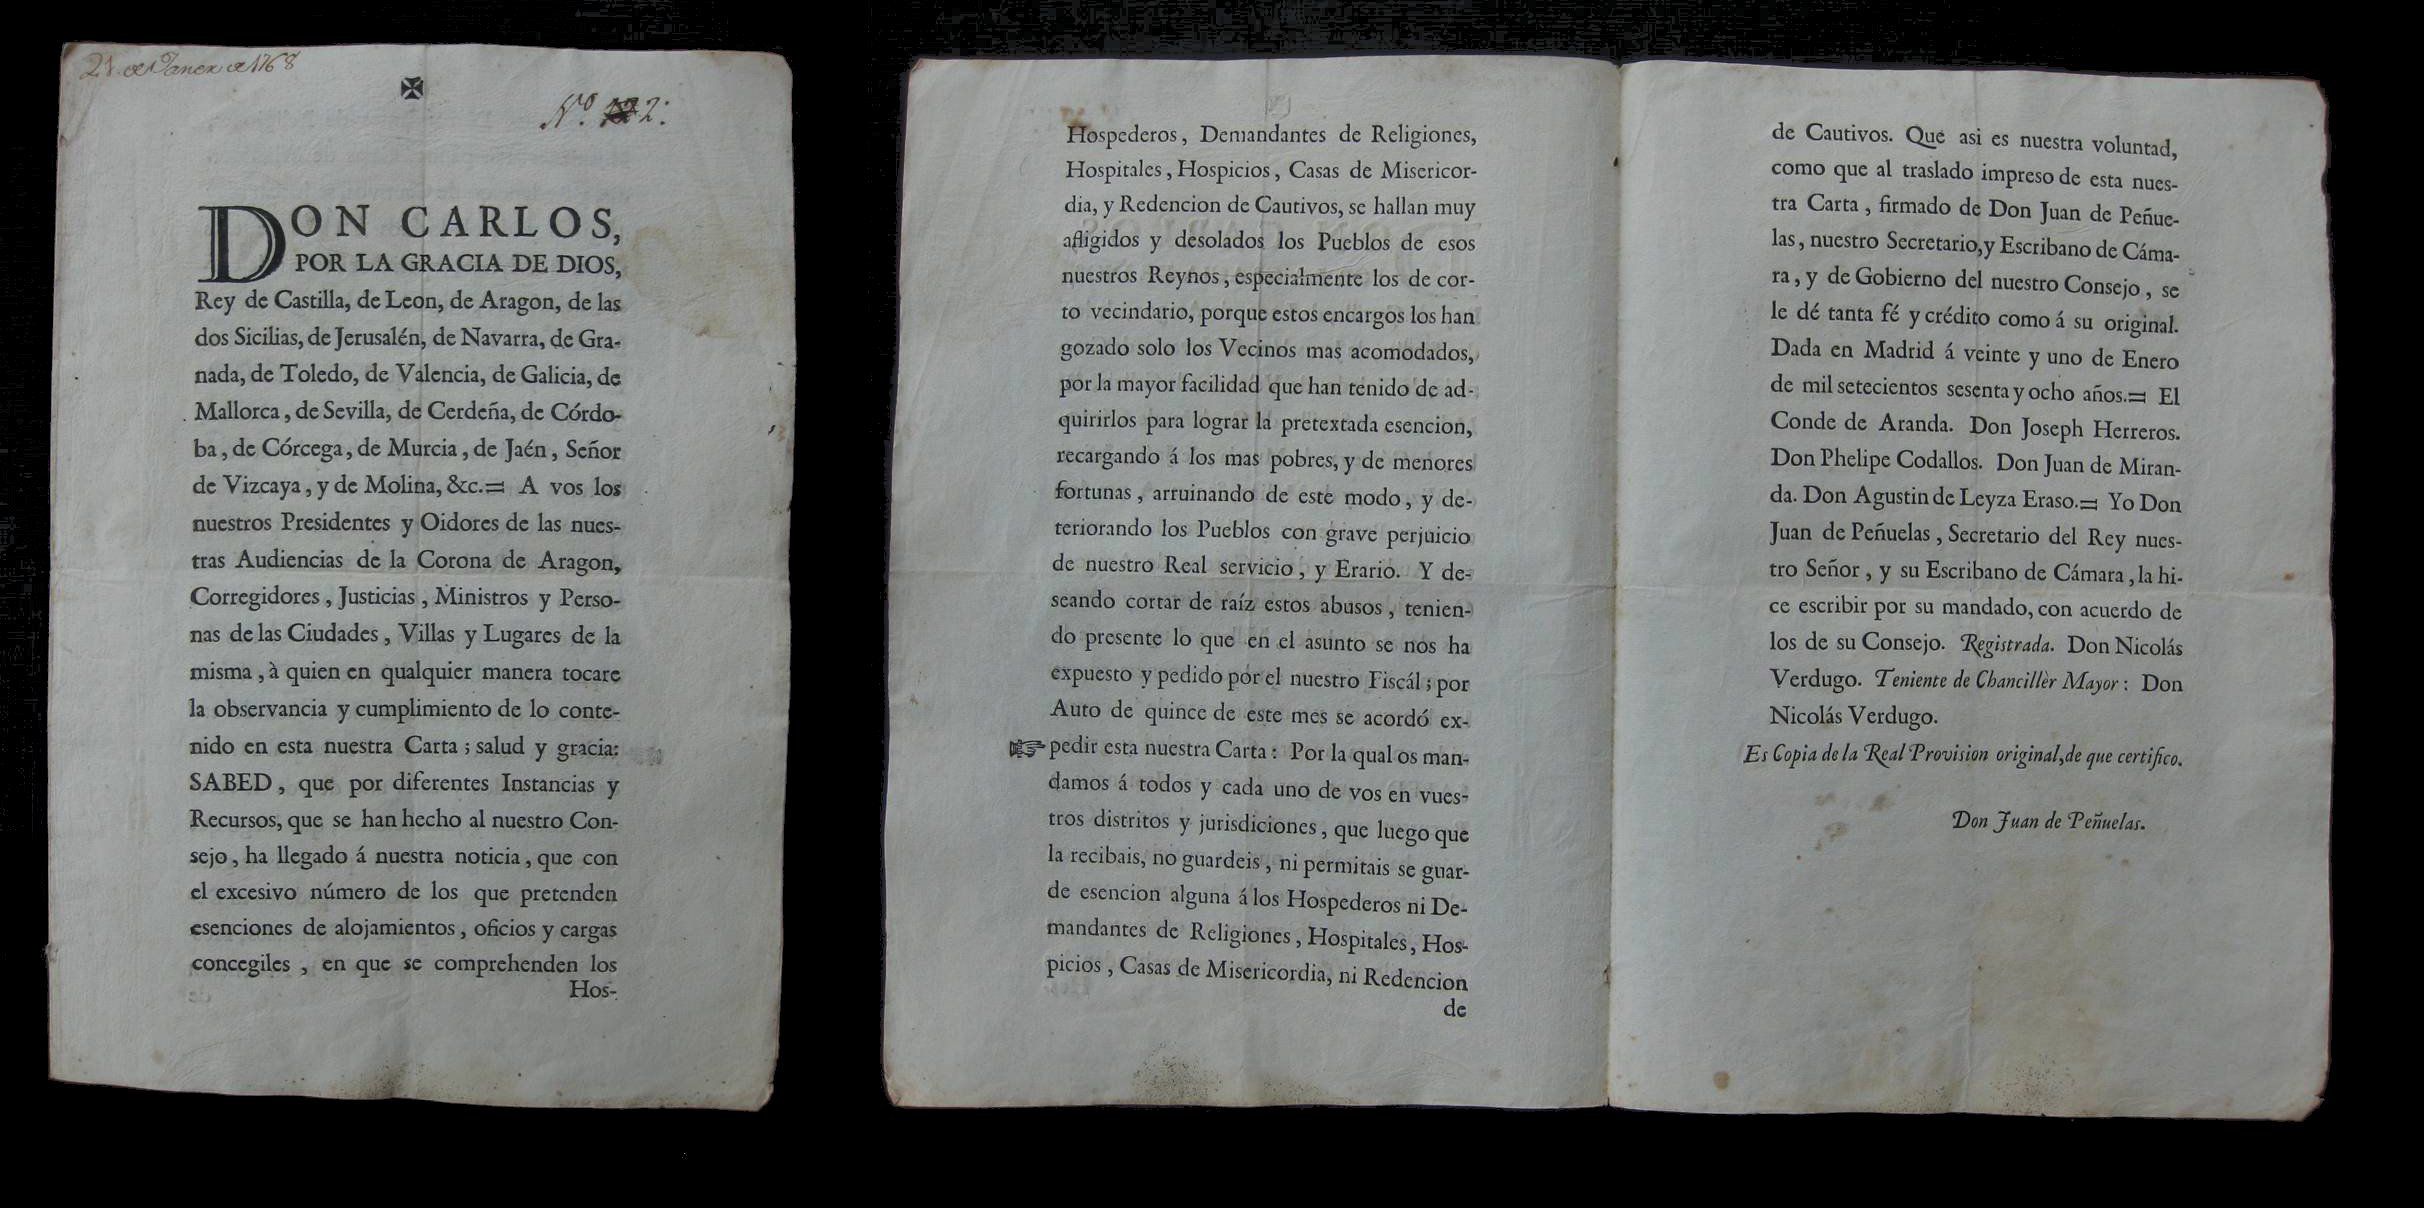 21 de Janer de 1768
Nº. 2:
DON CARLOS,
POR LA GRACIA DE DIOS,
Rey de Castilla, de Leon, de Aragon, de las
dos Sicilias, de Jerusalén, de Navarra, de Gra-
nada, de Toledo, de Valencia, de Galicia, de
Mallorca, de Sevilla, de Cerdeña, de Córdo-
ba, de Córcega, de Murcia, de Jaén, Señor
de Vizcaya, y de Molina, &c.= A vos los
nuestros Presidentes y Oidores de las nues-
tras Audiencias de la Corona de Aragon,
Corregidores, Justicias, Ministros y Perso-
nas de las Ciudades, Villas y Lugares de la
misma, à quien en qualquier manera tocare
la observancia y cumplimiento de lo conte-
nido en esta nuestra Carta; salud y gracia:
SABED, que por diferentes Instancias y
Recursos, que se han hecho al nuestro Con-
sejo, ha llegado á nuestra noticia, que con
el excesivo número de los que pretenden
esenciones de alojamientos, oficios y cargas
concegiles, en que se comprehenden los
Hos-
Hospederos, Demandantes de Religiones,
Hospitales, Hospicios, Casas de Misericor-
dia, y Redencion de Cautivos, se hallan muy
afligidos y desolados los Pueblos de esos
nuestros Reynos, especialmente los de cor-
to vecindario, porque estos encargos los han
gozado solo los Vecinos mas acomodados,
por la mayor facilidad que han tenido de ad-
quirirlos para lograr la pretextada esencion,
recargando á los mas pobres, y de menores
fortunas, arruinando de este modo, y de-
teriorando los Pueblos con grave perjuicio
de nuestro Real servicio, y Erario. Y de-
seando cortar de raíz estos abusos, tenien-
do presente lo que en el asunto se nos ha
expuesto y pedido por el nuestro Fiscál; por
Auto de quince de este mes se acordó ex-
pedir esta nuestra Carta: Por la qual os man-
damos á todos y cada uno de vos en vues-
tros distritos y jurisdiciones, que luego que
la recibais, no guardeis, ni permitais se guar-
de esencion alguna á los Hospederos ni De-
mandantes de Religiones, Hospitales, Hos-
picios, Casas de Misericordia, ni Redencion
de
de Cautivos. Que asi es nuestra voluntad,
como que al traslado impreso de esta nues-
tra Carta, firmado de Don Juan de Peñue-
las, nuestro Secretario, y Escribano de Cáma-
ra, y de Gobierno del nuestro Consejo, se
le dé tanta fé y crédito como á su original.
Dada en Madrid á veinte y uno de Enero
de mil setecientos sesenta y ocho años.= El
Conde de Aranda. Don Joseph Herreros.
Don Phelipe Codallos. Don Juan de Miran-
da. Don Agustin de Leyza Eraso.= Yo Don
Juan de Peñuelas, Secretario del Rey nues-
tro Señor, y su Escribano de Cámara, la hi-
ce escribir por su mandado, con acuerdo de
los de su Consejo. Registrada. Don Nicolás
Verdugo. Teniente de Chancillèr Mayor: Don
Nicolás Verdugo.
Es Copia de la Real Provision original, de que certifico.
Don Juan de Peñuelas.